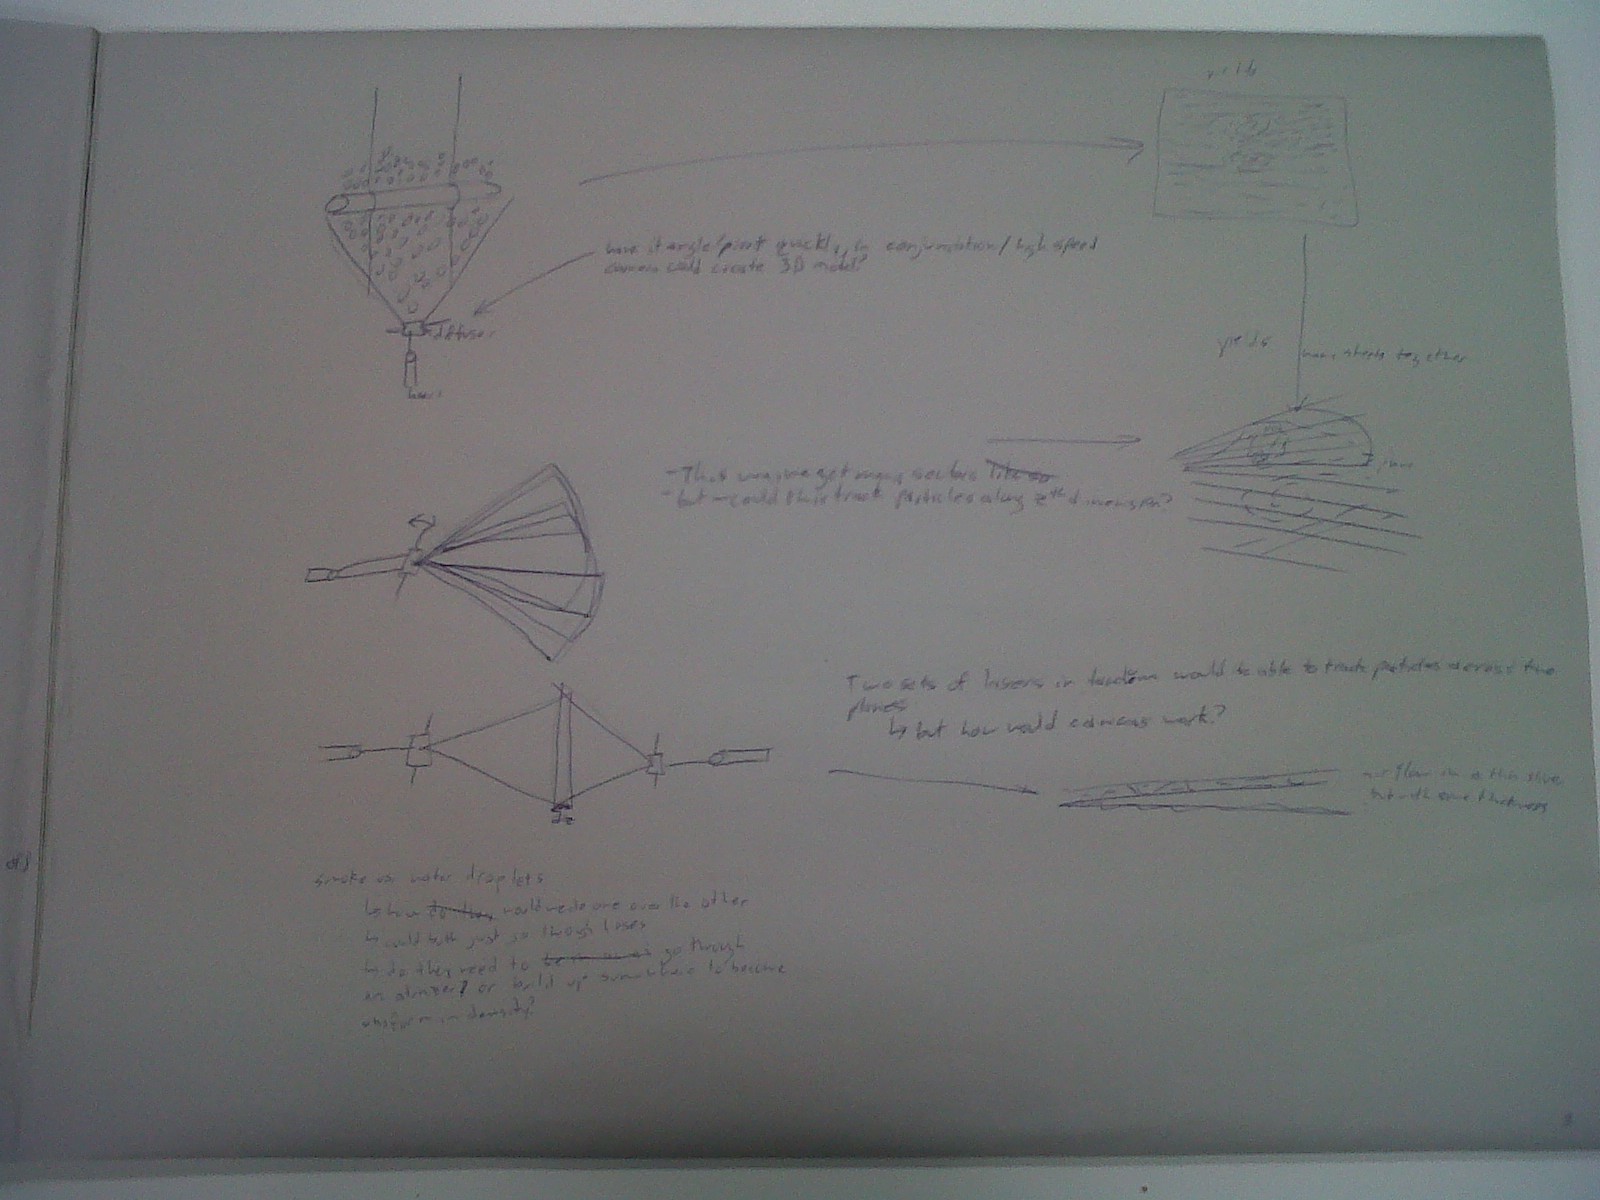 yields
have it angle/pivot quickly, in conjunctation/high speed
camera could create 3D model?
diffuser
laser
yields
many sheets together
plane
- That way we get many sectors like so
- but would this track particles along zth dimension?
Two sets of lasers in tandem would be able to track particles across two
planes
↳ but how would cameras work?
flow in a thin slice
but with some thickness
dz
smoke or water droplets
↳ how do they would we do one over the other
↳ could both just go through hoses
↳ do they need to go through
an atomizer? or build up somewhere to become
uniform in density?